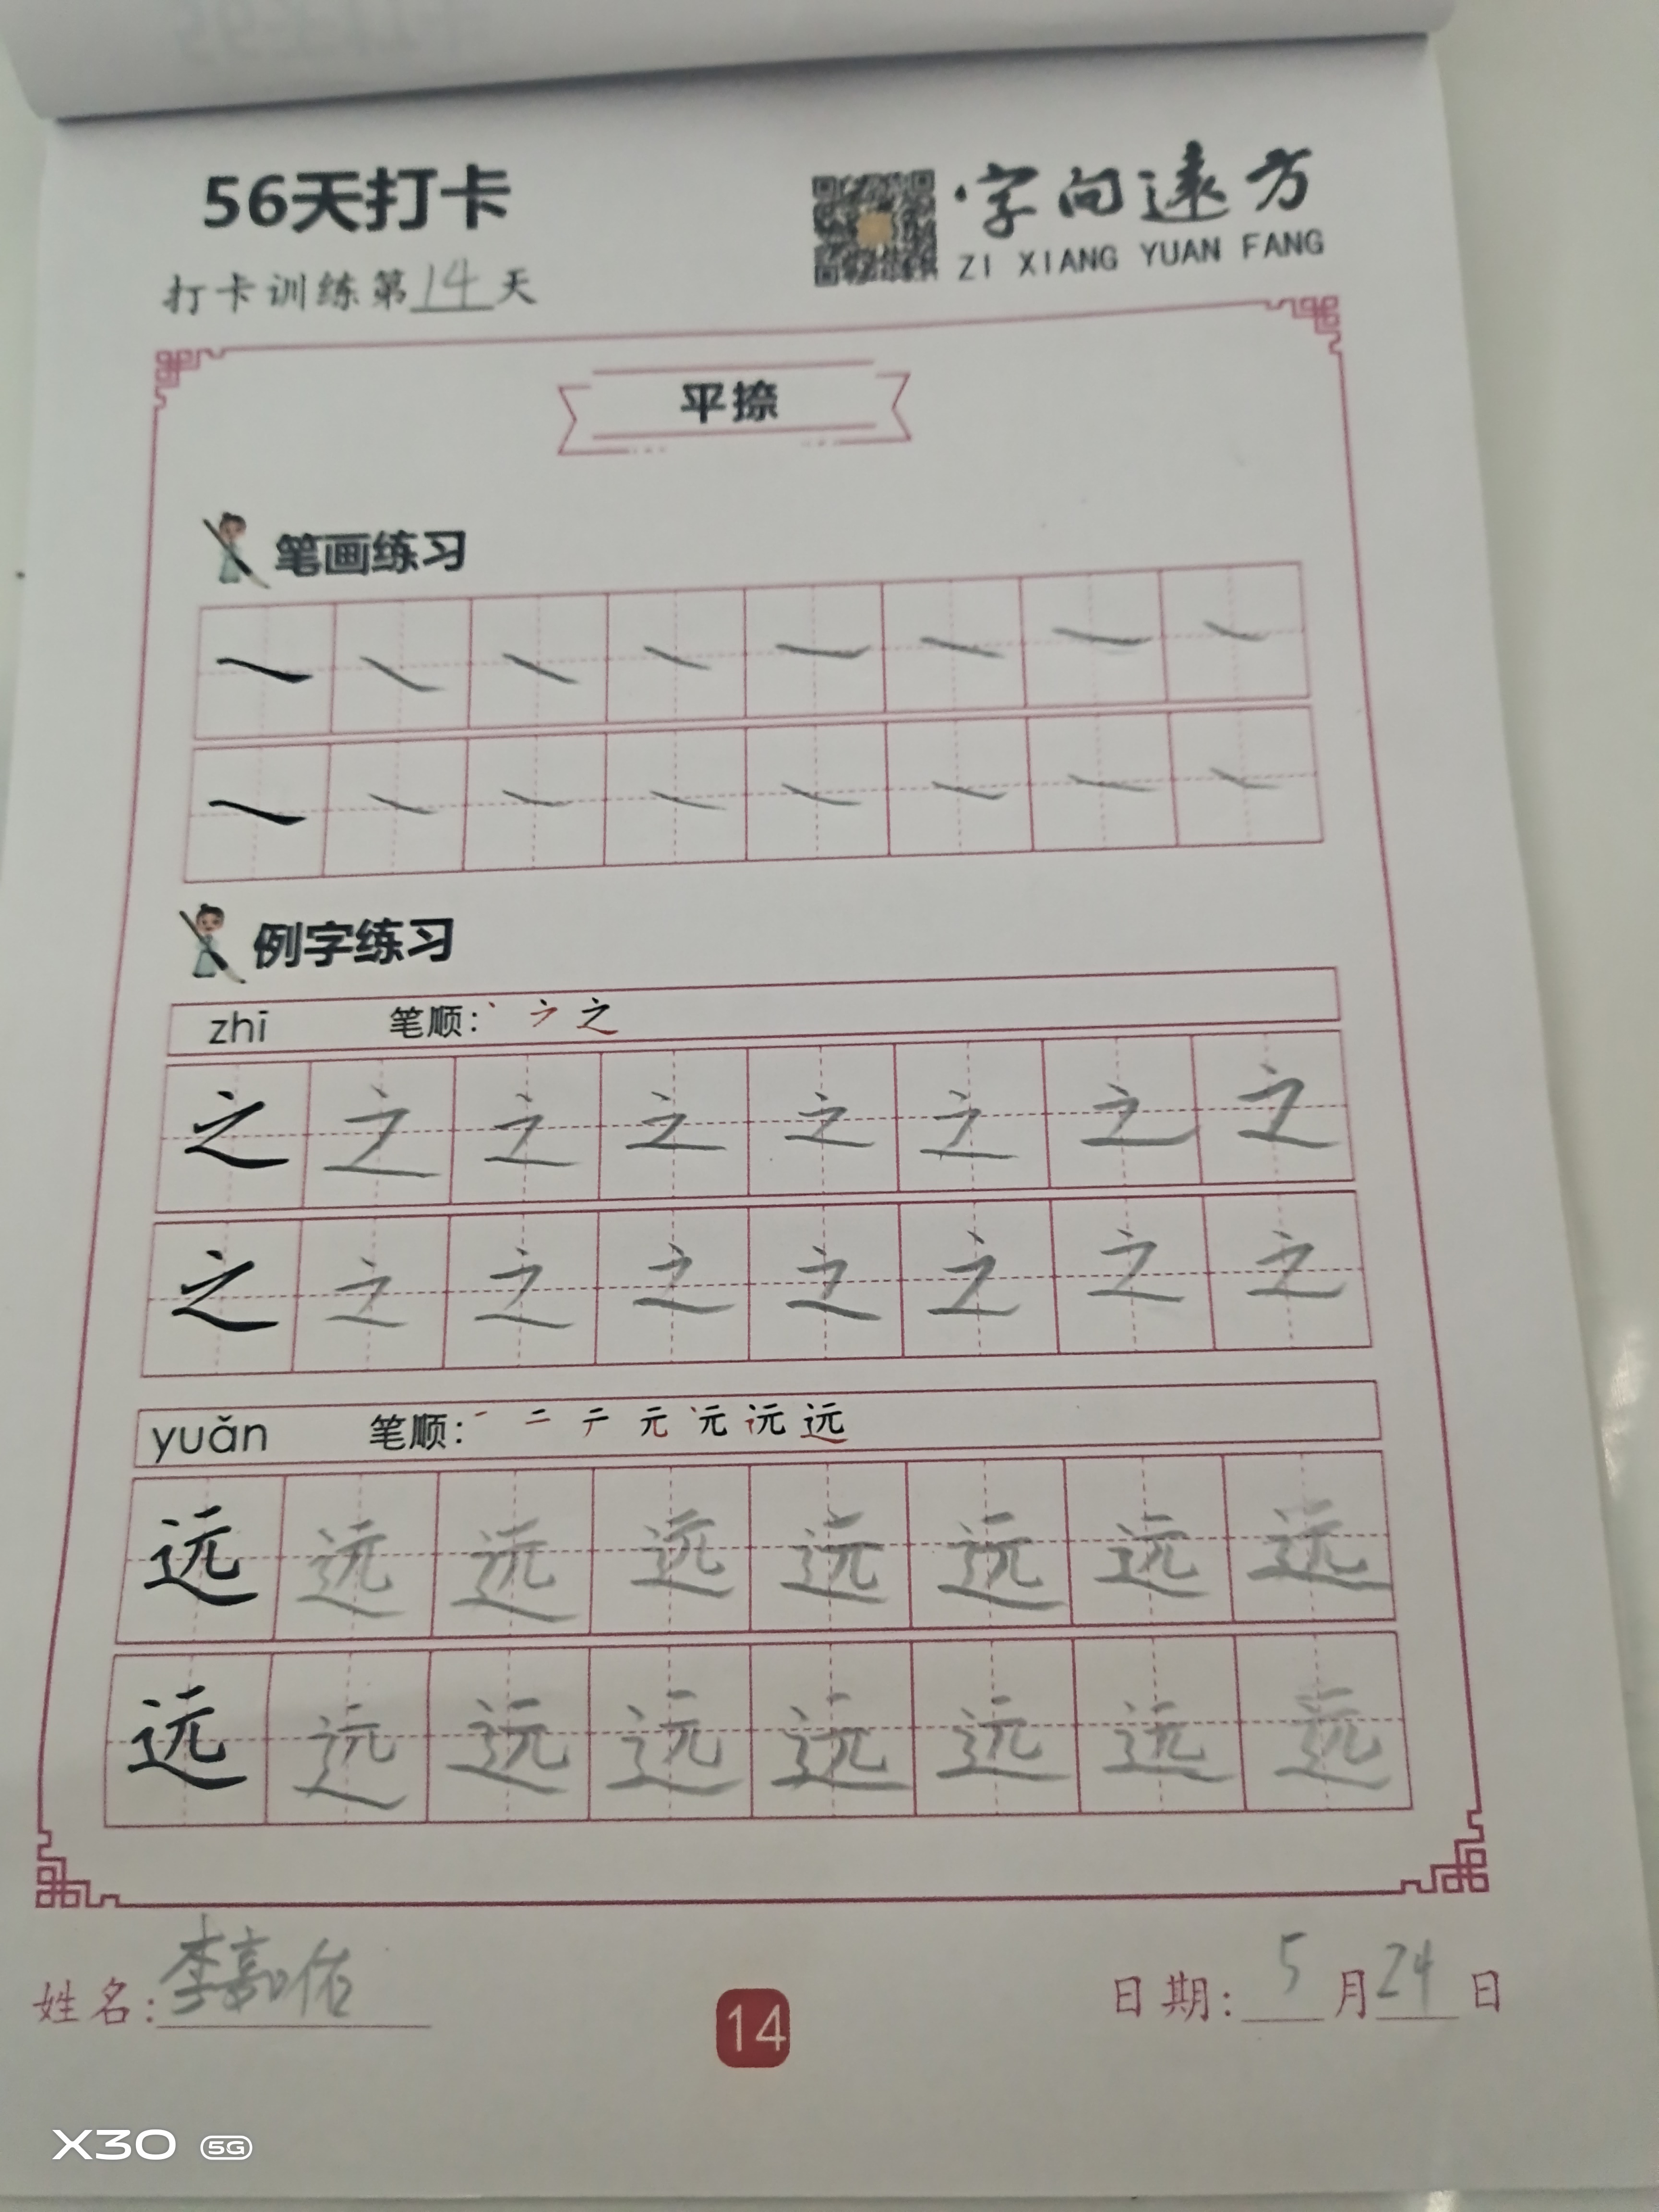 56天打卡
字向远方
ZI XIANG YUAN FANG
打卡训练第14天
平捺
笔画练习
例字练习
zhī 笔顺：丶 之
之 之 之 之 之 之 之 之
之 之 之 之 之 之 之 之
yuǎn 笔顺：一 二 亍 元 远
远 远 远 远 远 远 远 远
远 远 远 远 远 远 远 远
姓名：李嘉佑
14
日期：5月24日
X30 5G